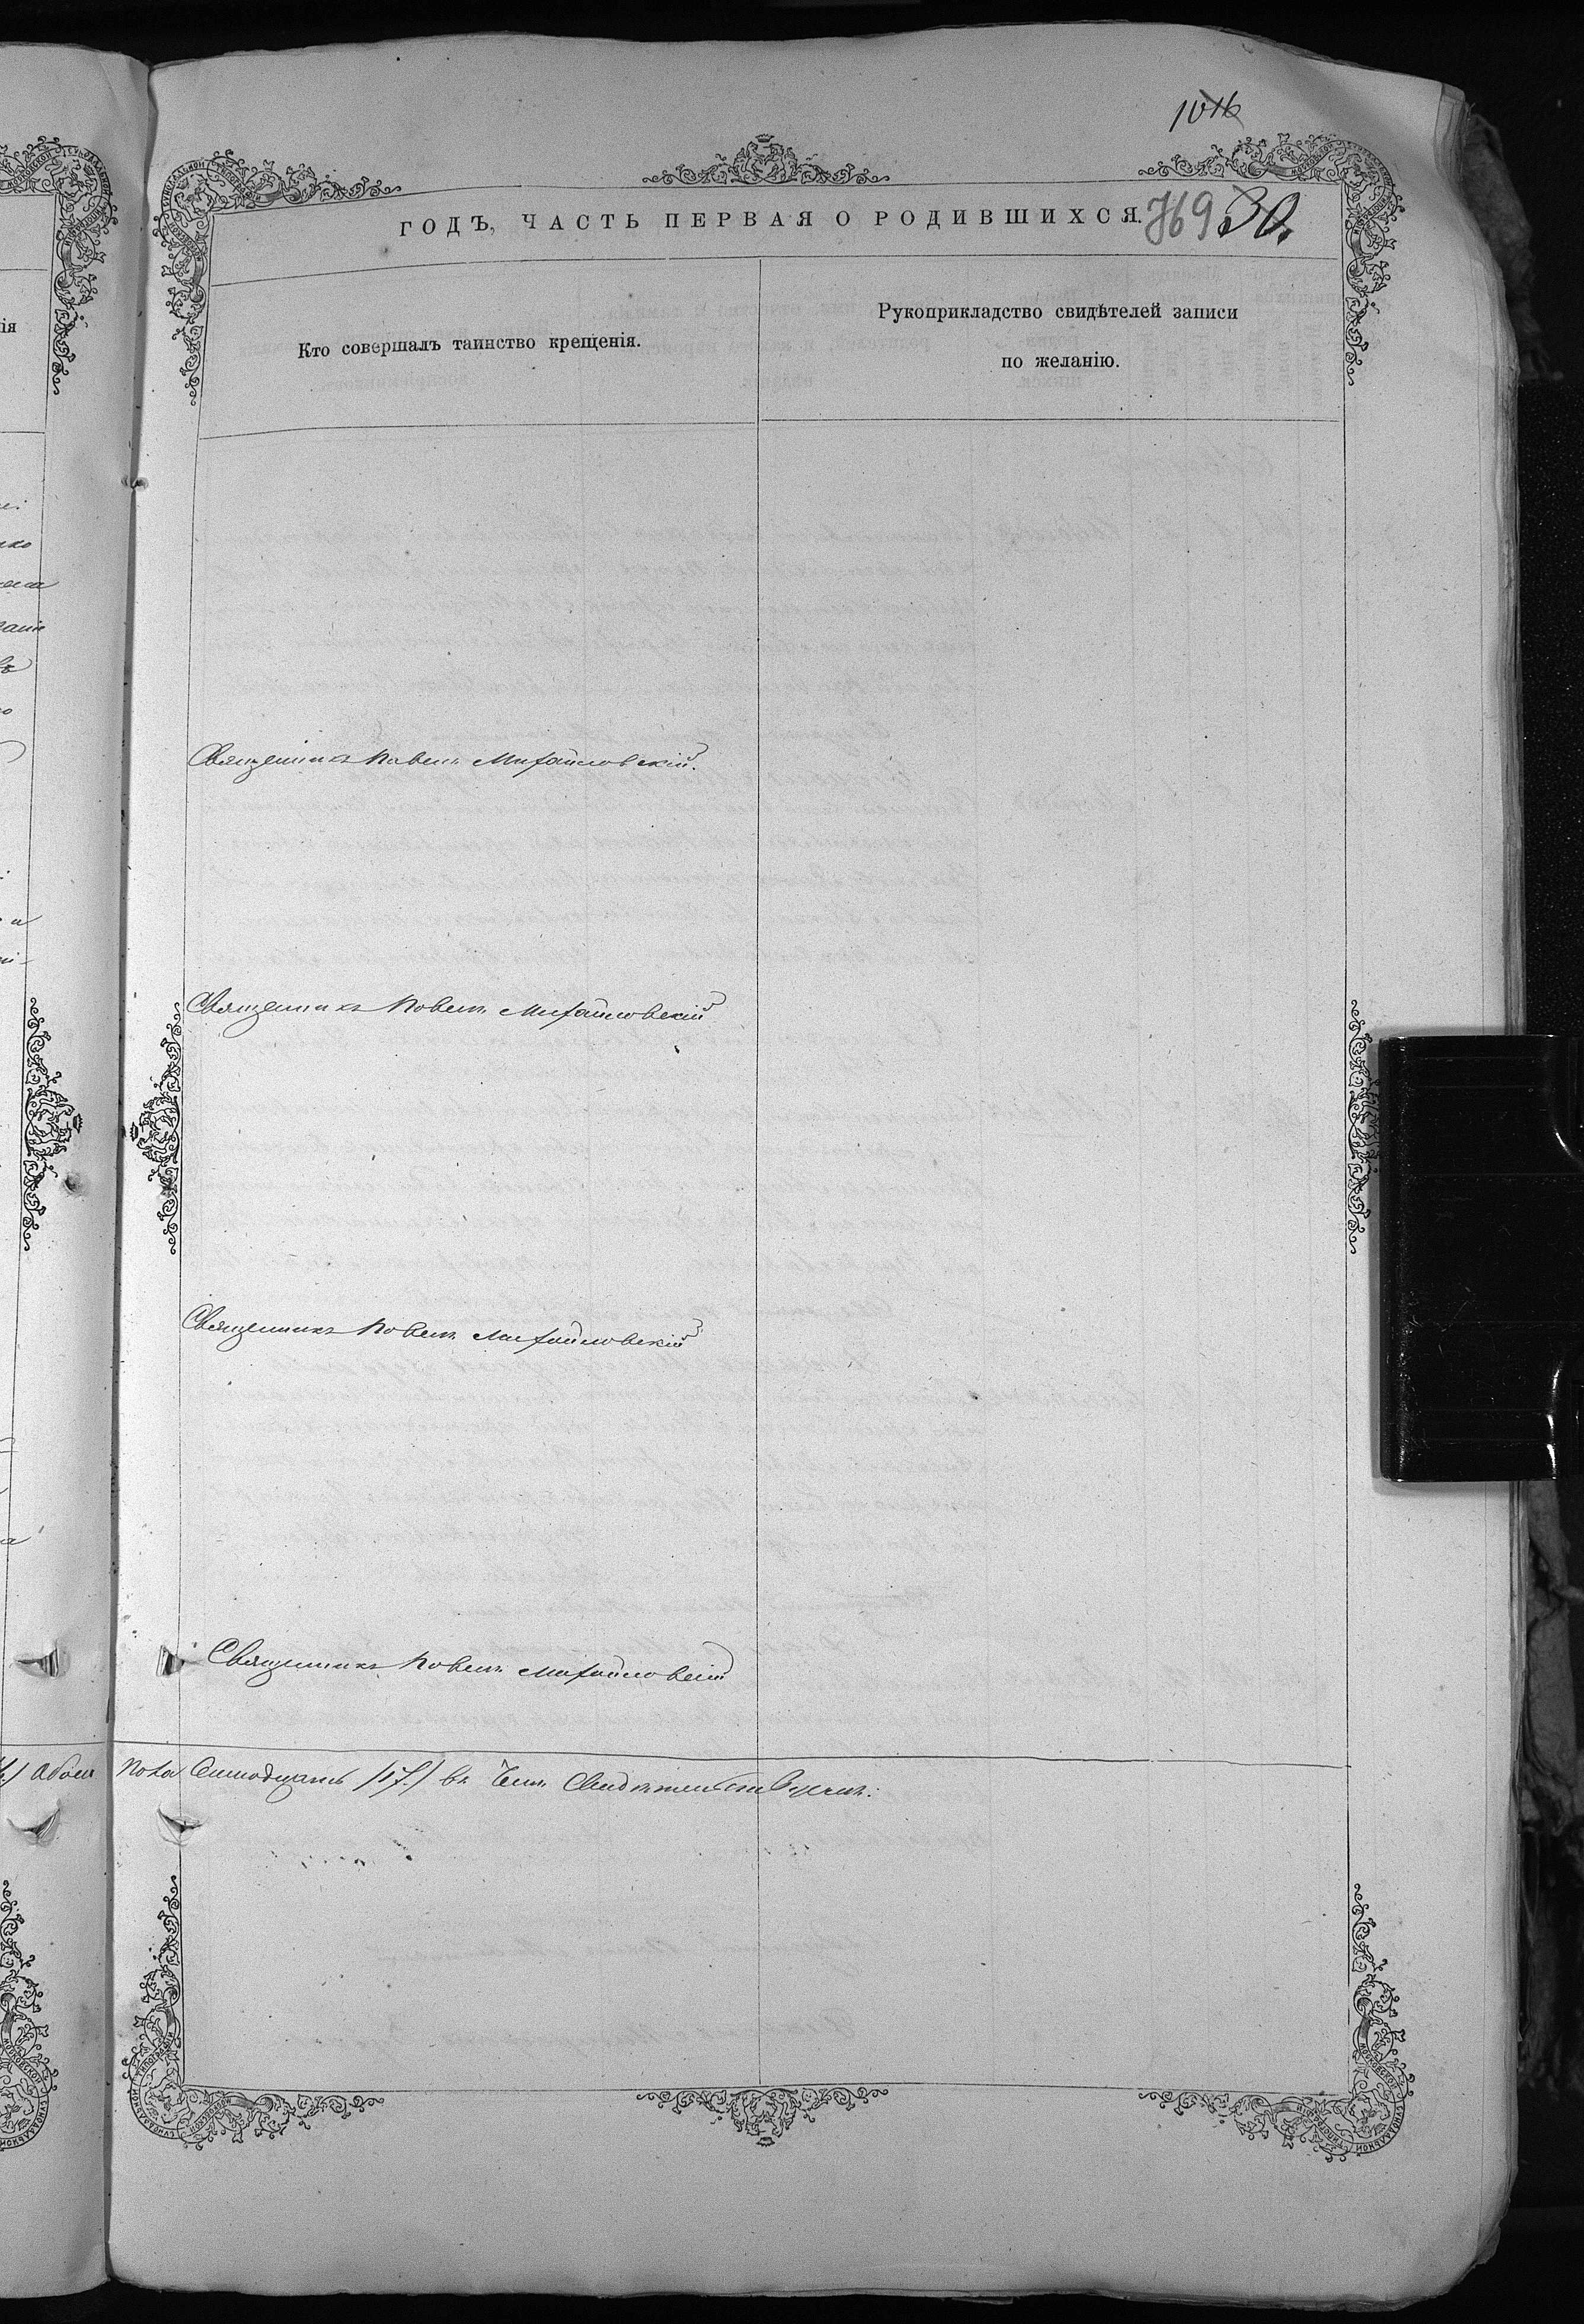 1016
ГОДЪ, ЧАСТЬ ПЕРВАЯ О РОДИВШИХСЯ. 769 30.
Кто совершалъ таинство крещенія.
Рукоприкладство свидѣтелей записи
по желанію.
Священникъ Павелъ Михайловскій.
Священникъ Павелъ Михайловскій
Священникъ Павелъ Михайловскій
Священникъ Павелъ Михайловскій
обоего пола Семнадцать /17/ въ чемъ Свидѣтельствуемъ: